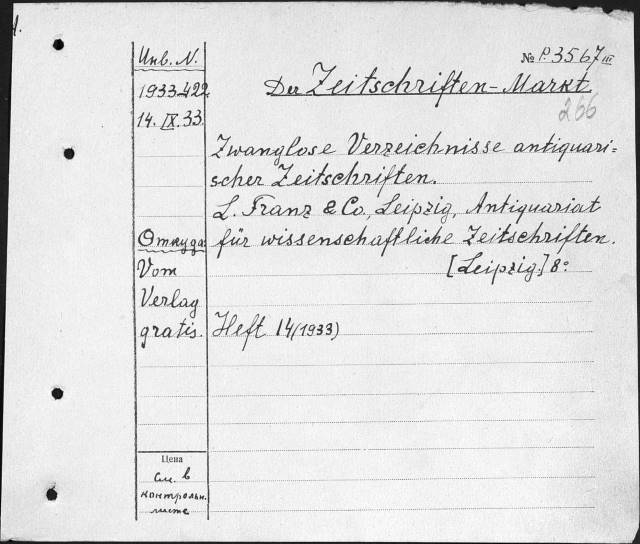 Инв. N.
1933-422
14. IX. 33.
Откуда
Vom
Verlag
gratis.
Цена
См. в
контрольн.
листе
№ P. 3567 III
Der Zeitschriften-Markt
266
Zwanglose Verzeichnisse antiquari=
scher Zeitschriften.
L. Franz & Co, Leipzig, Antiquariat
für wissenschaftliche Zeitschriften.
[Leipzig.] 8°
Heft 14 (1933)